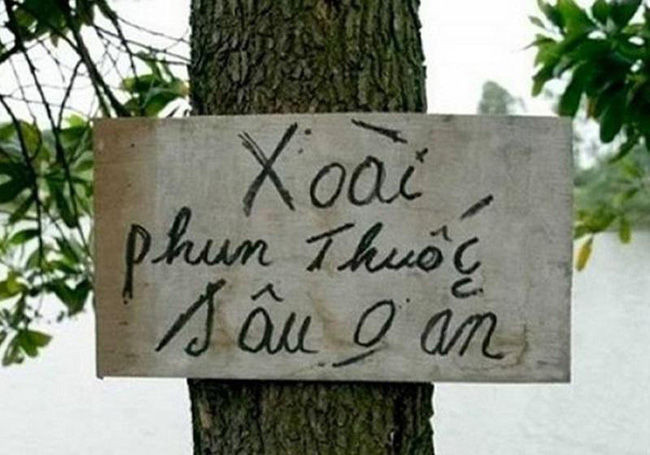 Xoài
phun Thuốc
sâu o ăn